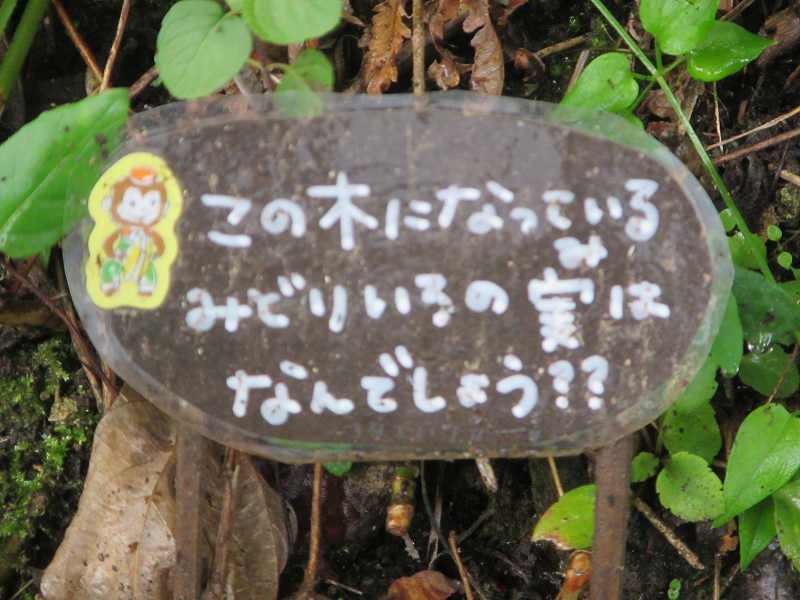 この木になっている
みどりいろの実は
み
なんでしょう??